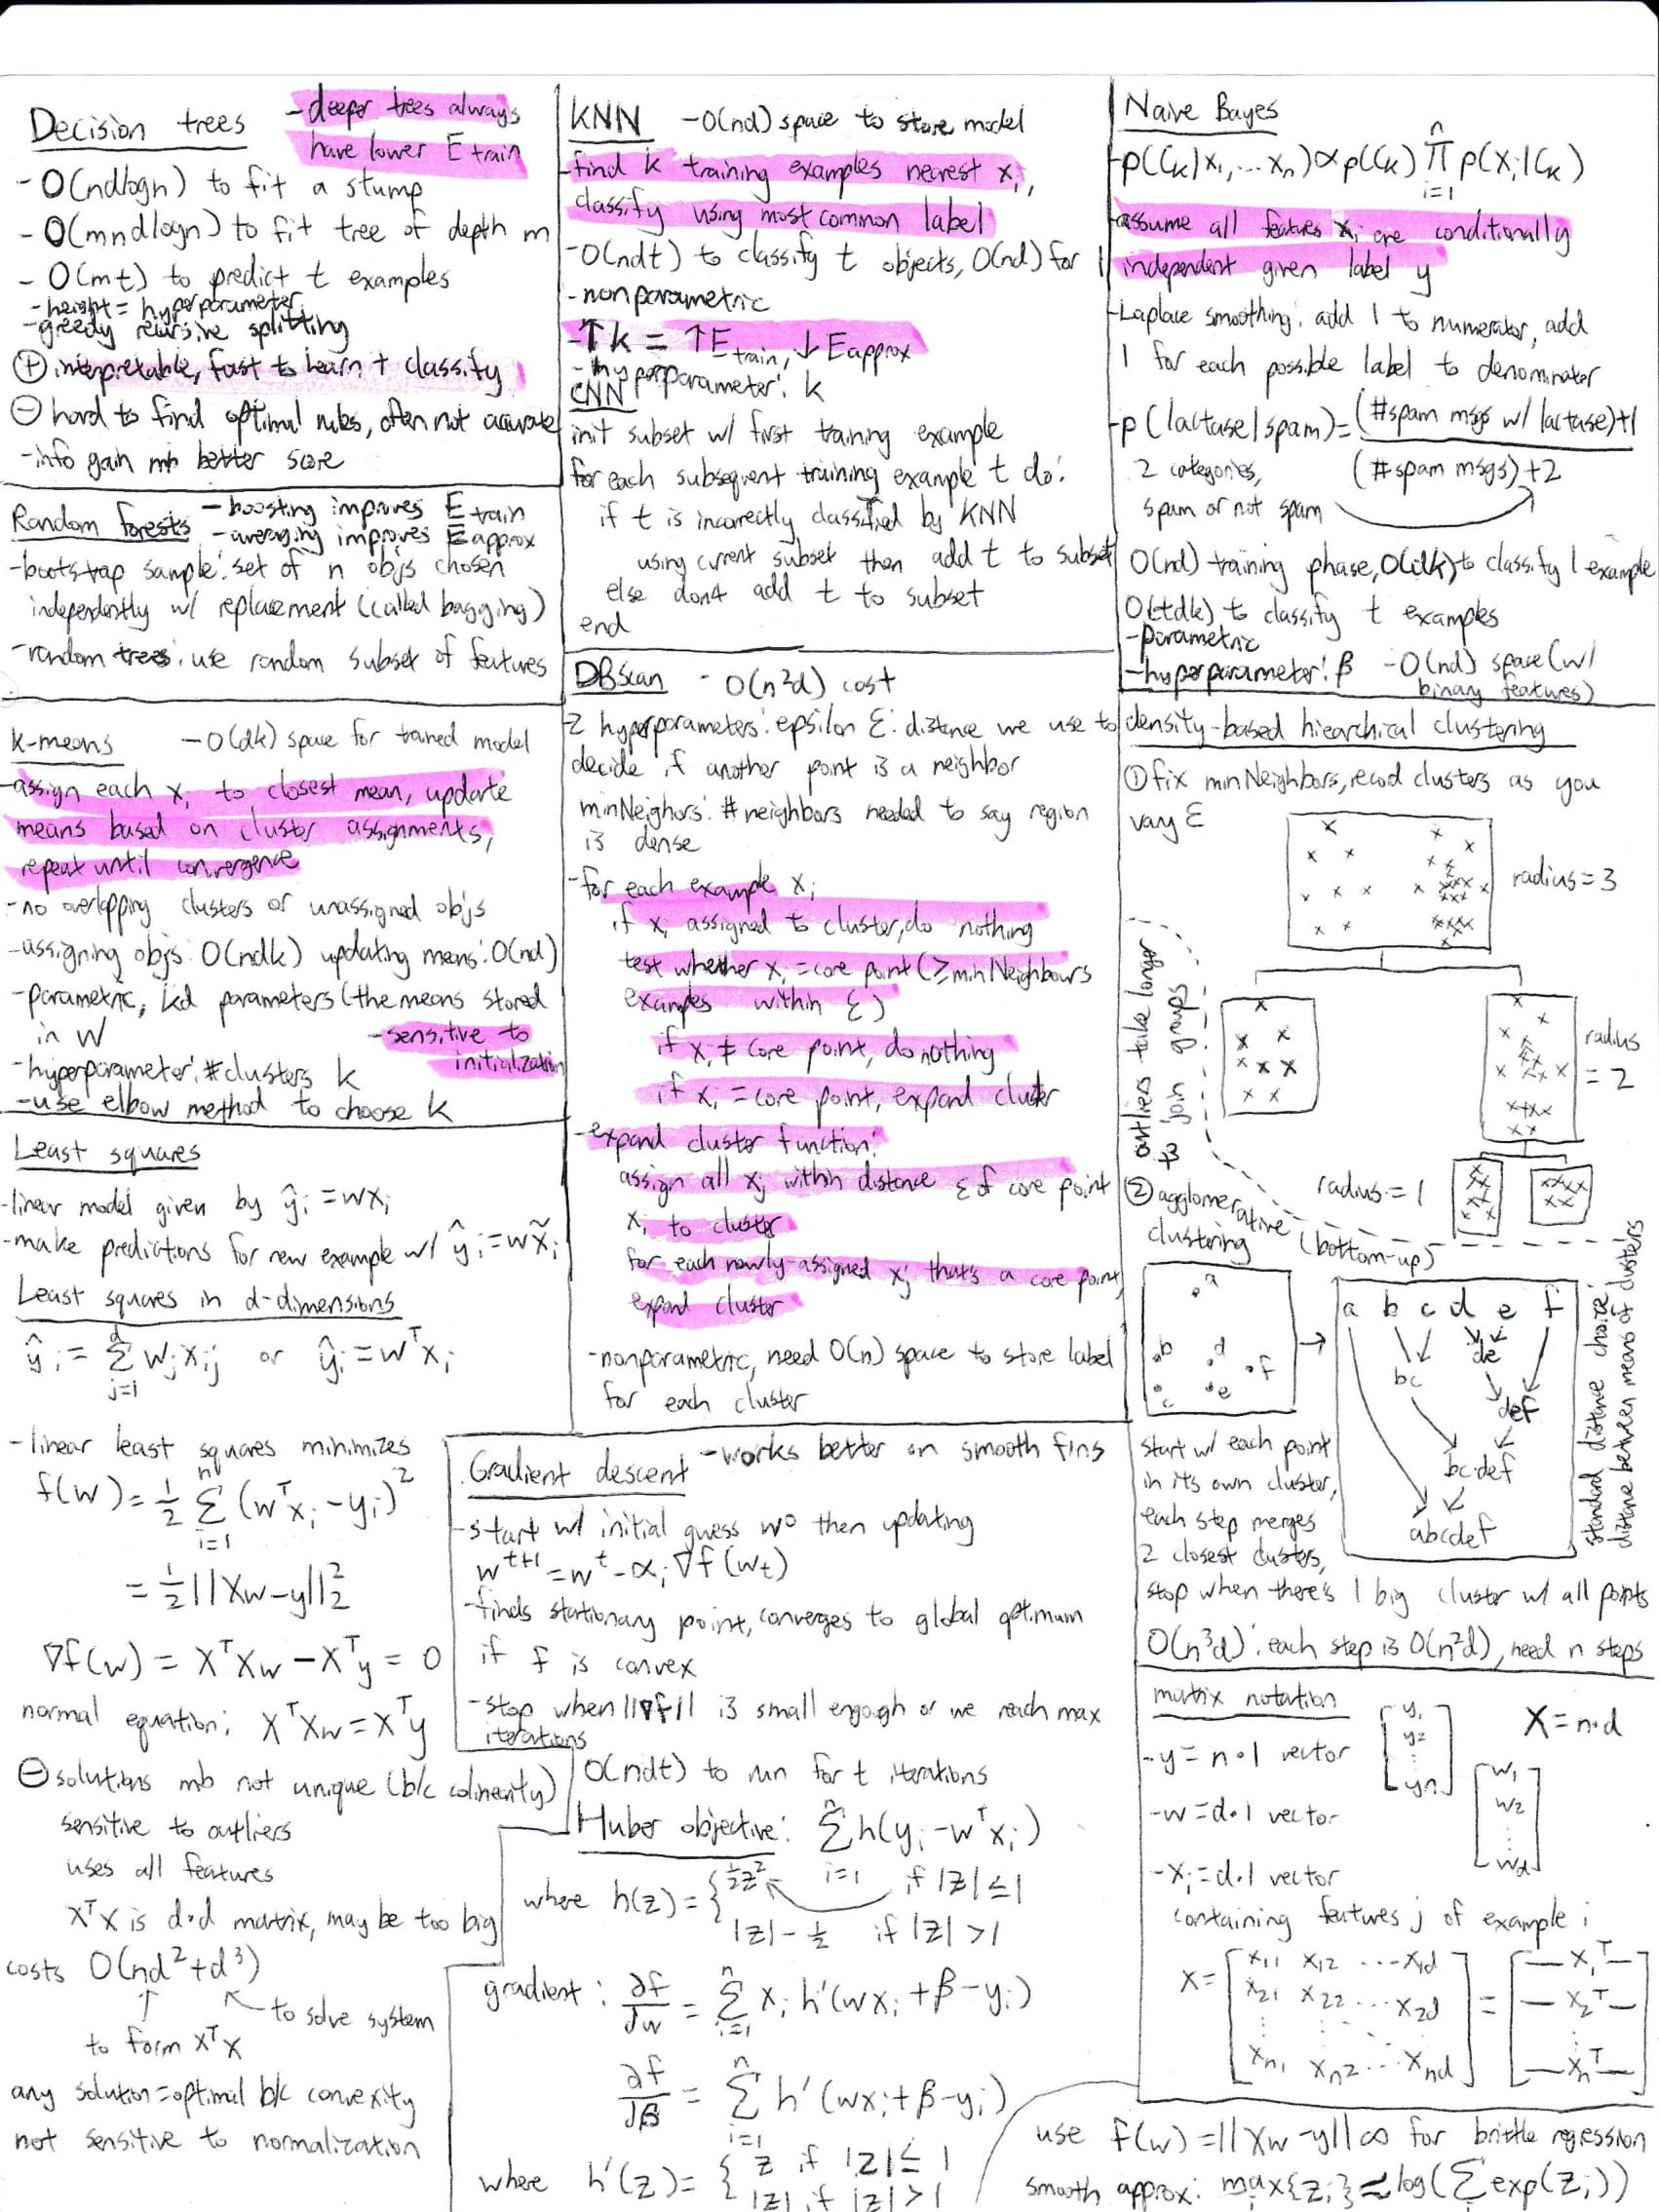 Decision trees
- deeper trees always
have lower E train
- O(ndlogn) to fit a stump
- O(mndlogn) to fit tree of depth m
- O(mt) to predict t examples
- height = hyperparameter
- greedy recursive splitting
⊕ interpretable, fast to learn + classify
⊖ hard to find optimal rules, often not accurate
- info gain mb better score
Random forests
- boosting improves E train
- averaging improves E approx
- bootstrap sample: set of n objs chosen
independently w/ replacement (called bagging)
- random trees: use random subset of features
k-means - O(dk) space for trained model
- assign each xi to closest mean, update
means based on cluster assignments,
repeat until convergence
- no overlapping clusters or unassigned objs
- assigning objs: O(ndk) updating means: O(nd)
- parametric, kd parameters (the means stored
in W
- sensitive to
initialization
- hyperparameter: # clusters k
- use elbow method to choose k
Least squares
- linear model given by ŷi = wxi
- make predictions for new example w/ ŷi = wx̃i
Least squares in d-dimensions
ŷi = Σ_{j=1}^{d} wj xij or ŷi = w^T xi
- linear least squares minimizes
f(w) = 1/2 Σ_{i=1}^{n} (w^T xi - yi)^2
= 1/2 ||Xw - y||_2^2
∇f(w) = X^T Xw - X^T y = 0
normal equation: X^T Xw = X^T y
⊖ solutions mb not unique (b/c colinearity)
sensitive to outliers
uses all features
X^T X is d·d matrix, may be too big
costs O(nd^2 + d^3)
to solve system
to form X^T X
any solution = optimal b/c convexity
not sensitive to normalization
KNN - O(nd) space to store model
- find k training examples nearest xi,
classify using most common label
- O(ndt) to classify t objects, O(nd) for 1
- nonparametric
- ↑k = ↑E train, ↓E approx
- hyperparameter: k
CNN
init subset w/ first training example
for each subsequent training example t do:
if t is incorrectly classified by KNN
using current subset then add t to subset
else dont add t to subset
end
DBScan - O(n^2d) cost
- 2 hyperparameters: epsilon ε: distance we use to
decide if another point is a neighbor
minNeighors: # neighbors needed to say region
is dense
- for each example xi
if xi assigned to cluster, do nothing
test whether xi = core point (≥ minNeighbours
examples within ε)
if xi ≠ core point, do nothing
if xi = core point, expand cluster
- expand cluster function:
assign all xj within distance ε of core point
xi to cluster
for each newly-assigned xj that's a core point,
expand cluster
- nonparametric, need O(n) space to store label
for each cluster
Gradient descent - works better on smooth fins
- start w/ initial guess w^0 then updating
w^{t+1} = w^t - αi ∇f(wt)
- finds stationary point, converges to global optimum
if f is convex
- stop when ||∇f|| is small engogh or we reach max
iterations
O(ndt) to run for t iterations
Huber objective: Σ_{i=1}^{n} h(yi - w^T xi)
where h(z) = { 1/2 z^2 if |z| ≤ 1
|z| - 1/2 if |z| > 1
gradient: ∂f/∂w = Σ_{i=1}^{n} xi h'(wxi + β - yi)
∂f/∂β = Σ_{i=1}^{n} h'(wxi + β - yi)
where h'(z) = { z if |z| ≤ 1
|z| if |z| > 1
Naive Bayes
- p(Ck|x1, ... xn) ∝ p(Ck) Π_{i=1}^{n} p(xi|Ck)
- assume all features xi are conditionally
independent given label y
- Laplace smoothing: add 1 to numerator, add
1 for each possible label to denominator
- p(lactase|spam) = (#spam msgs w/ lactase)+1
(#spam msgs)+2
2 categories,
spam or not spam
O(nd) training phase, O(dk) to classify 1 example
O(tdk) to classify t examples
- parametric
- hyperparameter: β
- O(nd) space (w/
binary features)
density-based hiearchical clustering
① fix minNeighbors, record clusters as you
vary ε
radius = 3
radius
= 2
radius = 1
outliers take longer
to join groups
② agglomerative
clustering (bottom-up)
a
b
c
d
e
f
a b c d e f
de
bc
def
bcdef
abcdef
standard distance choice:
distane between means of clusters
start w/ each point
in its own cluster,
each step merges
2 closest clusters,
stop when there's 1 big cluster w/ all points
O(n^3d): each step is O(n^2d), need n steps
matrix notation
X = n·d
- y = n·1 vector
[y1 y2 ⋮ yn]
- w = d·1 vector
[w1 w2 ⋮ wd]
- xi = d·1 vector
containing features j of example i
X = [x11 x12 ... x1d
x21 x22 ... x2d
⋮
xn1 xn2 ... xnd]
= [— x1^T —
— x2^T —
⋮
— xn^T —]
use f(w) = ||Xw - y||∞ for brittle regression
smooth approx: max{zi} ≈ log(Σ exp(zi))